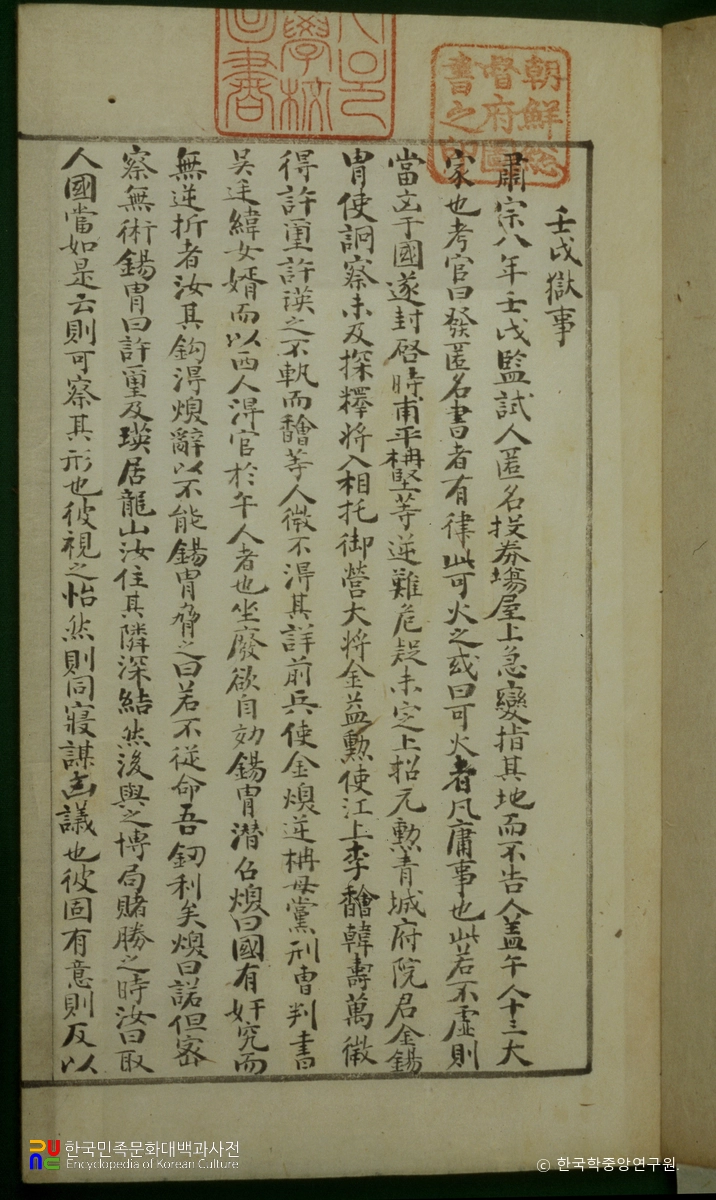 壬戌獄事
肅宗八年壬戌監試人匿名投券場屋上急變指其地而不告人盖午人十三大
家也考官曰發匿名書者有律此可火之或曰可火者凡庸事也此若不虛則
當立于國遂封啓時甫平枏堅等逆難危疑未定上招元勳青城府院君金錫
胄使詗察未及探釋將入相托御營大將金益勳使江上李𩡣韓壽萬徵
得許璽許瑛之不軌而𩡣等人微不得其詳前兵使金煥逆枏母黨刑曹判書
吳挺緯女婿而以西人得官於午人者也坐廢欲自効錫胄潜召煥曰國有奸宄而
無逆折者汝其鈎得煥辭以不能錫胄脅之曰若不從命吾釼利矣煥曰諾但密
察無術錫胄曰許璽及瑛居龍山汝住其隣深結然後與之博局賭勝之時汝曰取
人國當如是云則可察其形也彼視之怡然則同寢謀凶議也彼固有意則反以
朝鮮總督府圖書之印
學校
圖書
한국민족문화대백과사전
Encyclopedia of Korean Culture
© 한국학중앙연구원.